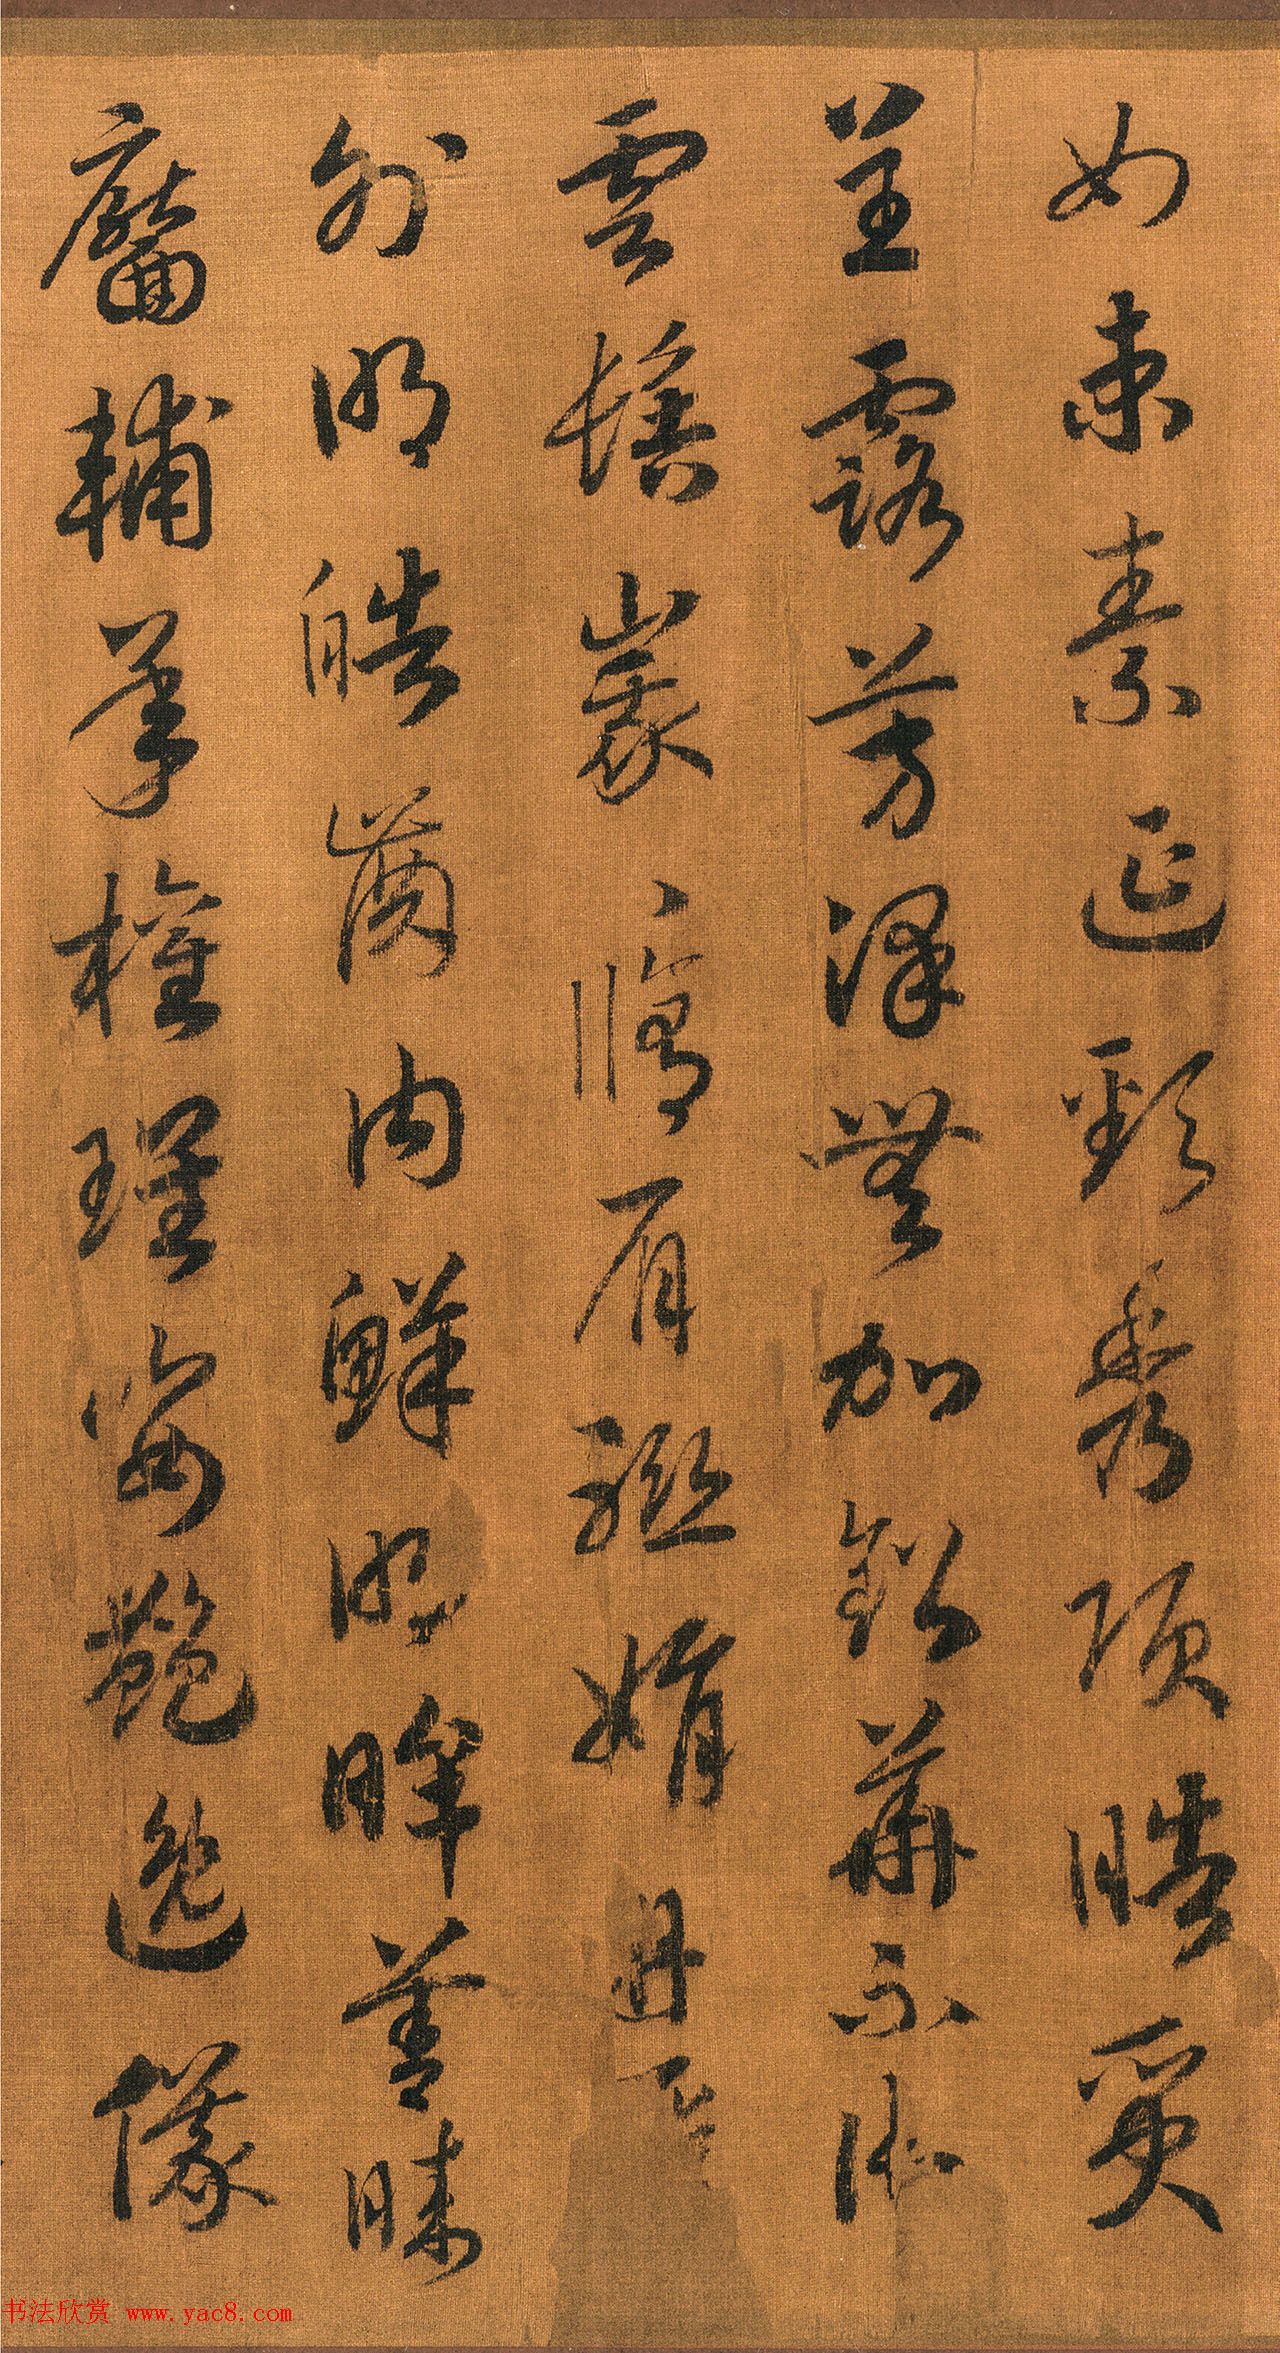 如束素延頸秀項皓質
呈露芳澤無加鉛華不御
雲髻峩々脩眉聯娟丹脣
外朗皓齒內鮮明眸善睞
靨輔承權瓌姿艷逸儀
书法欣赏 www.yac8.com